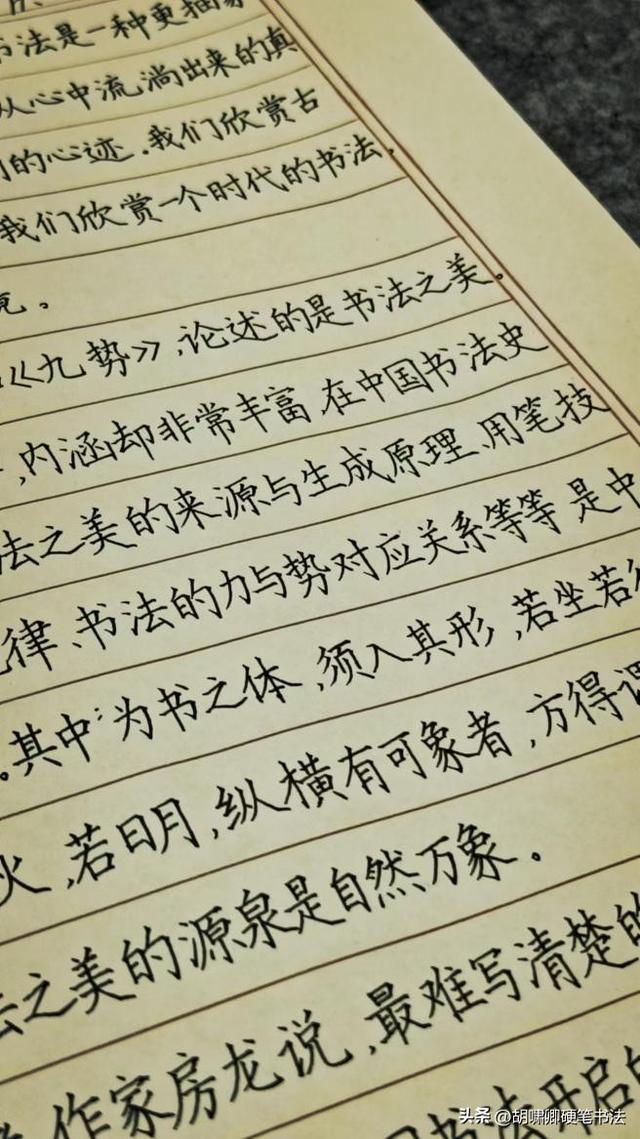 书法是一种更抽象
从心中流淌出来的真
们的心迹.我们欣赏古
我们欣赏一个时代的书法,
竟。
《九势》,论述的是书法之美。
,内涵却非常丰富,在中国书法史
法之美的来源与生成原理、用笔技
律、书法的力与势对应关系等等是中
。其中"为书之体,须入其形,若坐若行
火,若日月,纵横有可象者,方得谓
法之美的源泉是自然万象。
作家房龙说,最难写清楚的
书法开启的
头条 @胡啸卿硬笔书法